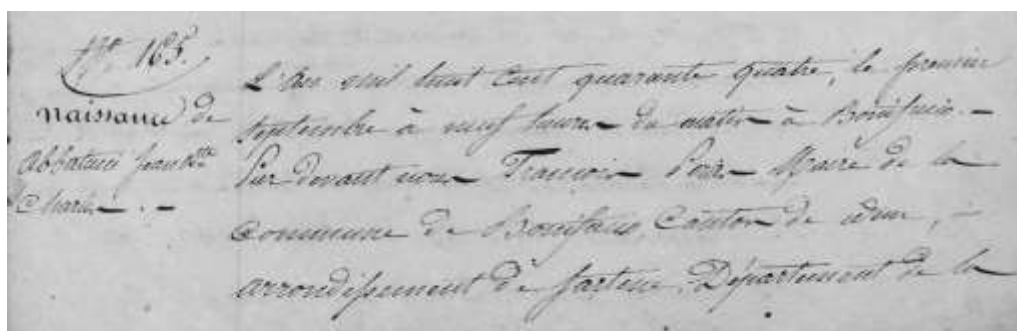 N.º 165.
naissance de
Abbatucci Jean Bte
Charles
L'an mil huit Cent quarante quatre, le premier
Septembre à neuf heures du matin à Bonifacio. –
Par devant nous François Maire de la
Commune de Bonifacio, Canton de idem, –
arrondissement de Sartene, Département de la